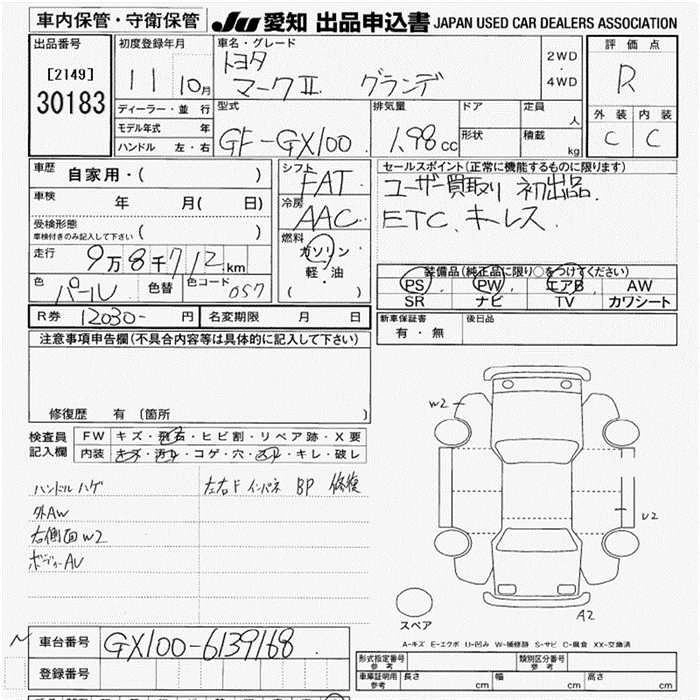 車内保管・守衛保管 JU 愛知 出品申込書 JAPAN USED CAR DEALERS ASSOCIATION
出品番号 初度登録年月 車名・グレード 評価点
[2149] 11 10月 トヨタ 2WD・4WD
30183 マークⅡ グランデ R
ディーラー・並行 型式 排気量 ドア 定員 人 外装 内装
モデル年式 年 GF-GX100 1.98cc 形状 積載 kg C C
ハンドル 左・右
車歴 自家用・( ) シフト FAT セールスポイント(正常に機能するものに限ります)
車検 年 月( 日) 冷房 AAC ユーザー買取り 初出品.
受検形態 ( ) ETC、キーレス
車検付きのみ記入して下さい 燃料
走行 9万8千712km ガソリン
軽・油
( )
装備品(純正品に限り○をつけてください)
色 パール 色替 色コード 057 PS PW エアB AW
SR ナビ TV カワシート
R券 12030- 円 名変期限 月 日 新車保証書 後日品
有・無
注意事項申告欄(不具合内容等は具体的に記入して下さい)
修復歴 有 (箇所 )
検査員 FW キズ・飛石・ヒビ割・リペア跡・X要
記入欄 内装 キズ・汚れ・コゲ・穴・スレ・キレ・破レ
W2
ハンドルハゲ 左右F インパネ BP 修復
外AW
右側面W2
ボディーAU
U2
スペア
A2
A-キズ E-エクボ U-凹み W-補修跡 S-サビ C-腐食 XX-交換済
車台番号 GX100-6139168
登録番号
形式指定番号 参考 類別区分番号 参考
車庫証明用 参考 長さ cm 幅 cm 高さ cm